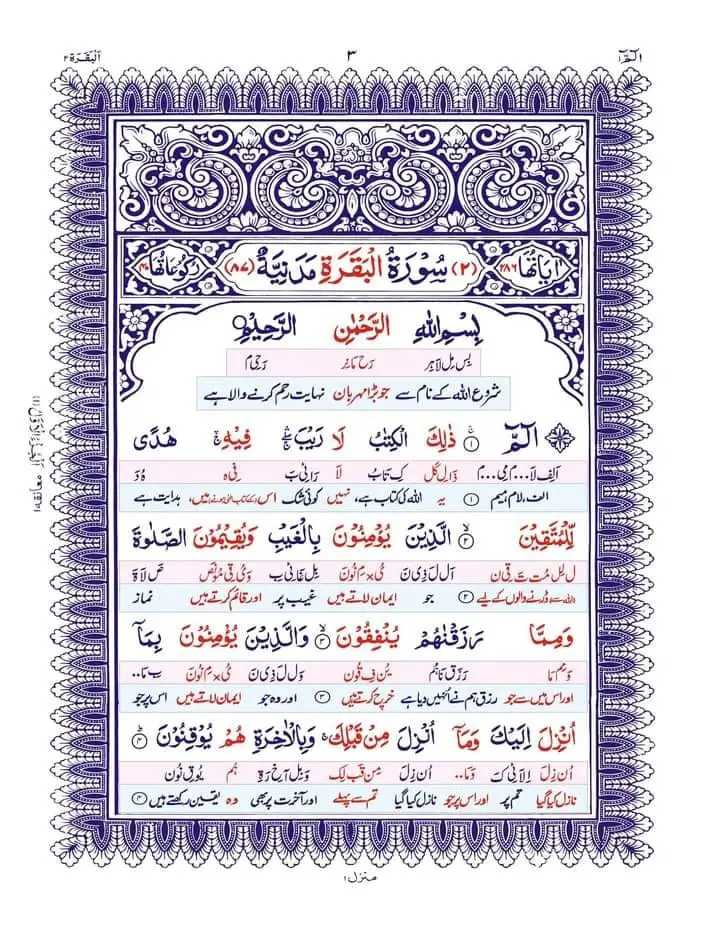 الٓمّٓ ۱ ۳ اَلْبَقَرَة ۲
اٰیَاتُهَا ۲۸۶ (۲) سُوْرَةُ الْبَقَرَةِ مَدَنِیَّةٌ (۸۷) رُكُوْعَاتُهَا ۴۰
بِسْمِ اللّٰهِ الرَّحْمٰنِ الرَّحِیْمِ
بِس مِل لَاہِر رَح مَانِر رَحِی م
شروع اللہ کے نام سے جو بڑا مہربان نہایت رحم کرنے والا ہے
الٓمّٓ ۚ ۱ ذٰلِكَ الْكِتٰبُ لَا رَیْبَ ۛۖ فِیْهِ ۛۚ هُدًی
اَلِف لَا۔۔۔م مِی۔۔۔م ذَا لِ گل کِ تَابُ لَا رَائِ بَ فِی ہ ہُ دَ
الف، لام، میم ۱ یہ اللہ کی کتاب ہے، نہیں کوئی شک اس میں، ہدایت ہے
لِّلْمُتَّقِیْنَ ۙ ۲ الَّذِیْنَ یُؤْمِنُوْنَ بِالْغَیْبِ وَیُقِیْمُوْنَ الصَّلٰوةَ
لِ لِل مُت تَ قِی نَ اَل لَ ذِی نَ یُء مِ نُونَ بِل غَائِ بِ وَیُ قِی مُونَص صَ لَاةَ
اللہ سے ڈرنے والوں کے لیے ۲ جو ایمان لاتے ہیں غیب پر اور قائم کرتے ہیں نماز
وَمِمَّا رَزَقْنٰهُمْ یُنْفِقُوْنَ ۙ ۳ وَالَّذِیْنَ یُؤْمِنُوْنَ بِمَاۤ
وَمِم مَا رَزَق نَاہُم یُن فِ قُون وَل لَ ذِی نَ یُء مِ نُونَ بِ مَا۔۔
اور اس میں سے جو رزق ہم نے انہیں دیا ہے خرچ کرتے ہیں ۳ اور وہ جو ایمان لاتے ہیں اس پر جو
اُنْزِلَ اِلَیْكَ وَمَاۤ اُنْزِلَ مِنْ قَبْلِكَ ۚ وَبِالْاٰخِرَةِ هُمْ یُوْقِنُوْنَ ؕ ۴
اُن زِلَ اِلَائِ کَ وَمَا۔۔ اُن زِلَ مِن قَب لِک وَبِل آ خِ رَةِ ہُم یُوقِ نُون
نازل کیا گیا تم پر اور اس پر جو نازل کیا گیا تم سے پہلے اور آخرت پر بھی وہ یقین رکھتے ہیں ۴
منزل ۱